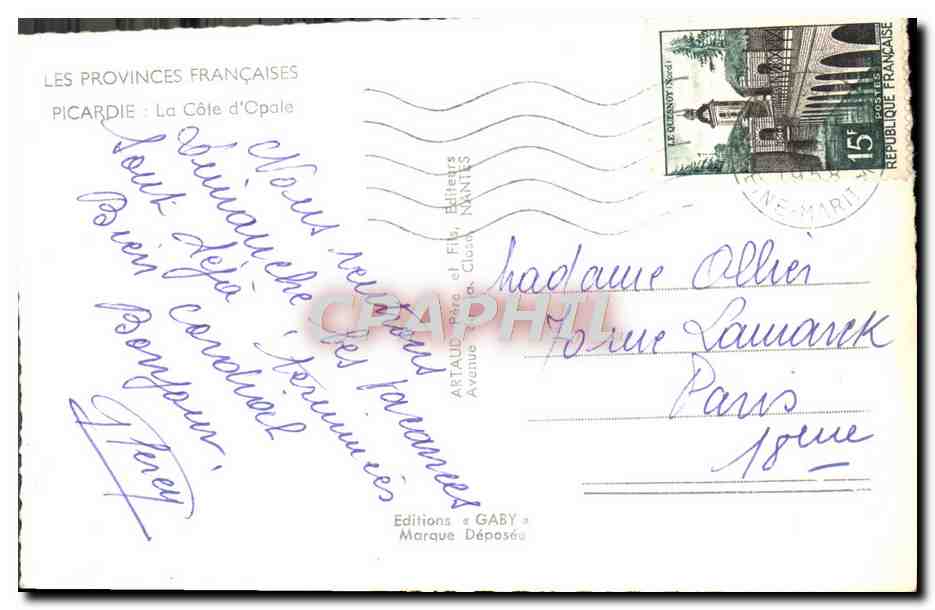 LES PROVINCES FRANÇAISES
PICARDIE : La Côte d'Opale
Nous rentrons
dimanche, les vacances
sont déjà terminées
Bien cordial
Bonjour.
ARTAUD Père et Fils, Editeurs
Avenue de la Close, NANTES
Editions « GABY »
Marque Déposée
LE QUESNOY (Nord)
15F
POSTES
REPUBLIQUE FRANÇAISE
NE-MARIT
Madame Ollier
70 rue Lamarck
Paris
18eme
CPAPHIL